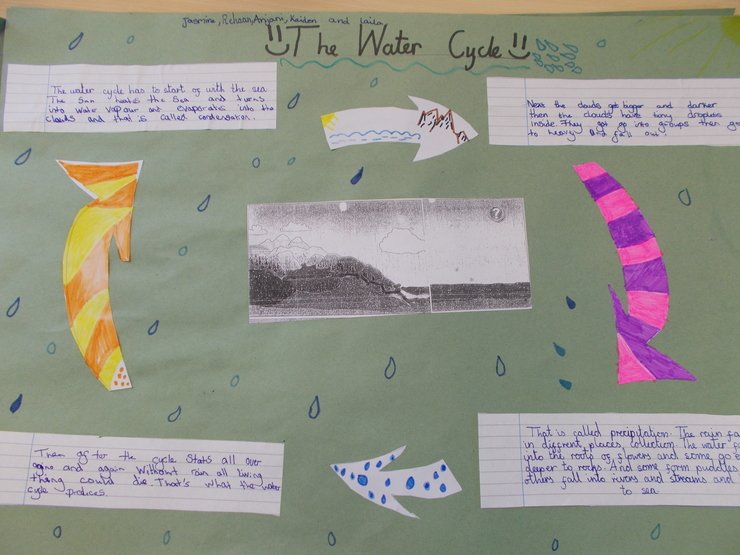 Jasmine, Rehsan, Anjani, Kaiden and Laila
The Water Cycle
The water cycle has to start of with the sea
The Sun heats the Sea and turns
into water vapour and evaporates into the
clouds and that is called condensation.
Next the clouds get bigger and darker
then the clouds have tiny droplets
inside. They get go into groups then ge
to heavy and fall out!
?
That is called precipitation. The rain fa
in diffrent places, collection. The water f
into the roots of flowers and some go e
deeper to rocks. And some form puddles
others fall into rivers and streams and
to sea
Then after the cycle stats all over
agine and again without rain all living
thing could die. That's what the water
cycle produces.